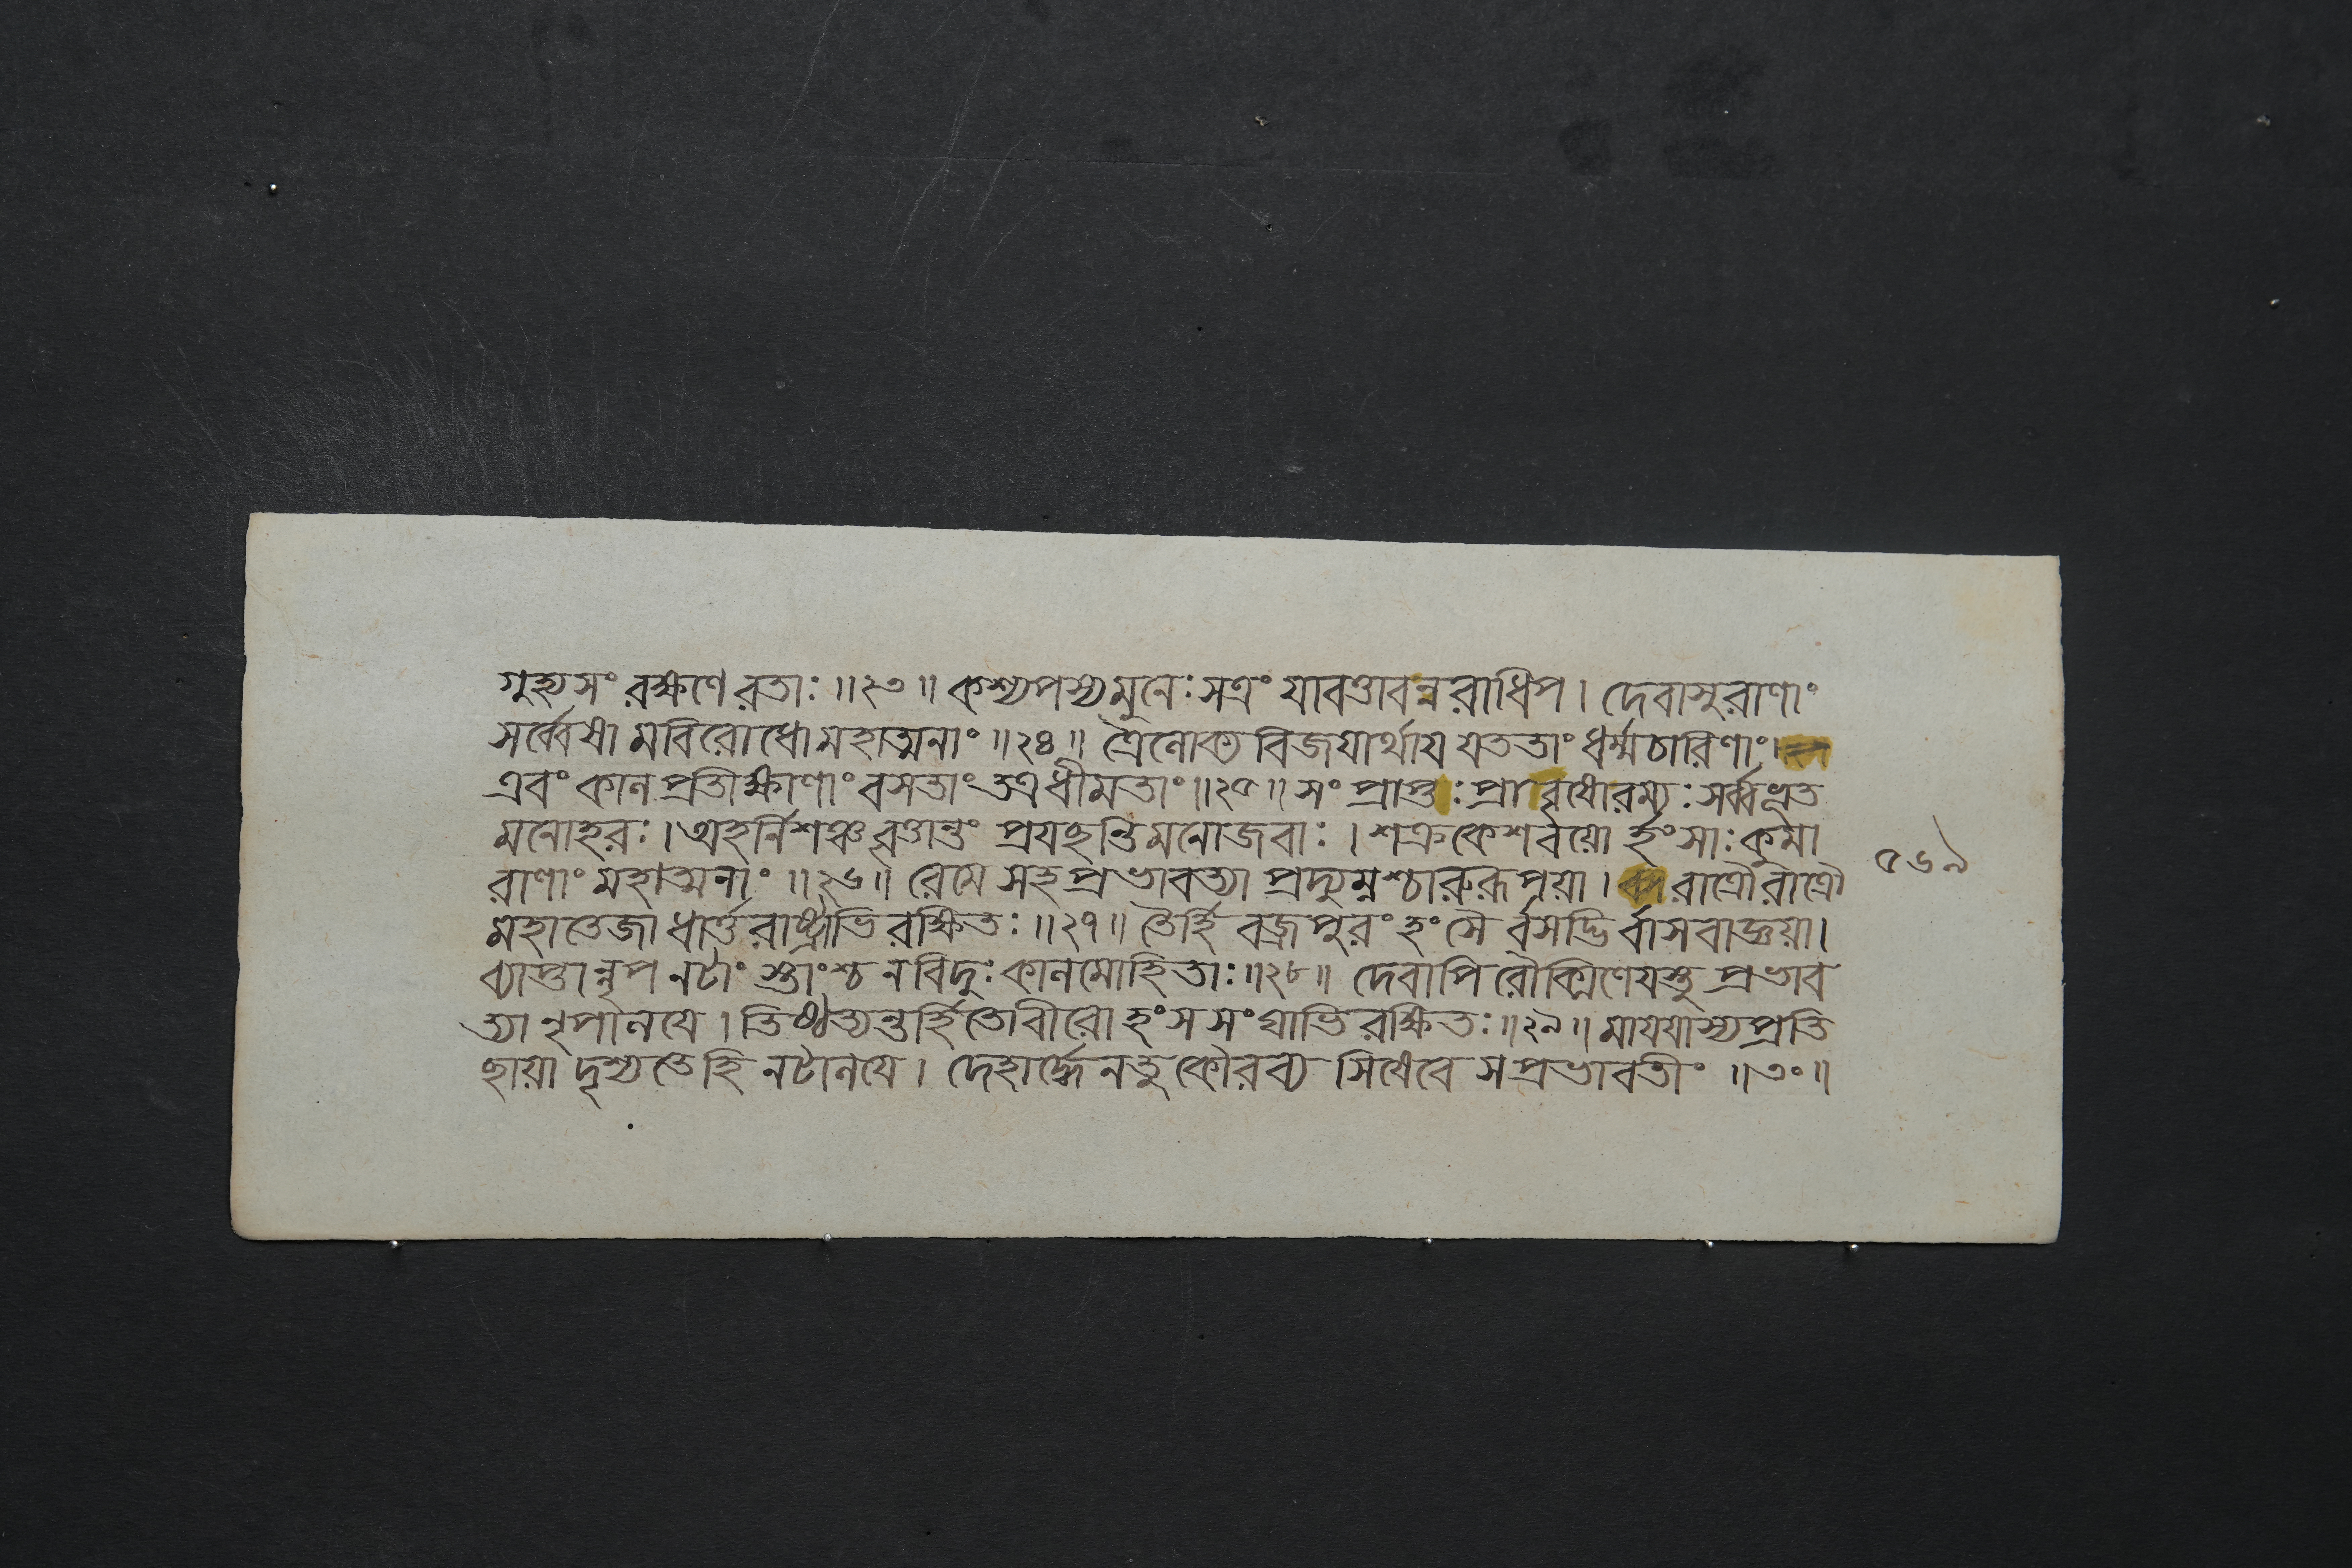 গুহ্যসংরক্ষণে রতাঃ ॥২৩॥ কশ্যপস্য মুনেঃ সত্রং যাবত্তাবন্নরাধিপ । দেবাসুরাণাং
সর্ব্বেষামবিরোধো মহাত্মনাং ॥২৪॥ ত্রৈলোক্যবিজয়ার্থায় যততাং ধর্ম্মচারিণাং ।
এবং কালপ্রতীক্ষাণাং বসতাং তত্র ধীমতাং ॥২৫॥ সংপ্রাপ্তঃ প্রাবৃষো রম্যঃ সর্ব্বভূত
মনোহরঃ । অহর্নিশঞ্চ বৃত্তান্তং প্রযছন্তি মনোজবাঃ । শক্রকেশবয়োর্হংসাঃ কুমা
রাণাং মহাত্মনাং ॥২৬॥ রেমে সহ প্রভাবত্যা প্রদ্যুম্নশ্চারুরূপয়া । রাত্রৌ রাত্রৌ
মহাতেজা ধার্ত্তরাষ্ট্রাভিরক্ষিতঃ ॥২৭॥ তৈর্হি বজ্রপুরং হংসৈর্বসদ্ভির্বাসবাজ্ঞয়া।
ব্যাপ্তান্নৃপ নটাংস্তাংশ্চ ন বিদুঃ কালমোহিতাঃ ॥২৮॥ দেবাপি রৌক্মিণেয়স্তু প্রভাব
ত্যা নৃপালযে । তিষ্ঠত্যন্তর্হিতো বীরো হংসসংঘাভিরক্ষিতঃ ॥২৯॥ মাযযাস্য প্রতি
ছায়া দৃশ্যতে হি নটালযে । দেহার্দ্ধেন তু কৌরব্য সিষেবে স প্রভাবতীং ॥৩০॥
৫৬৯